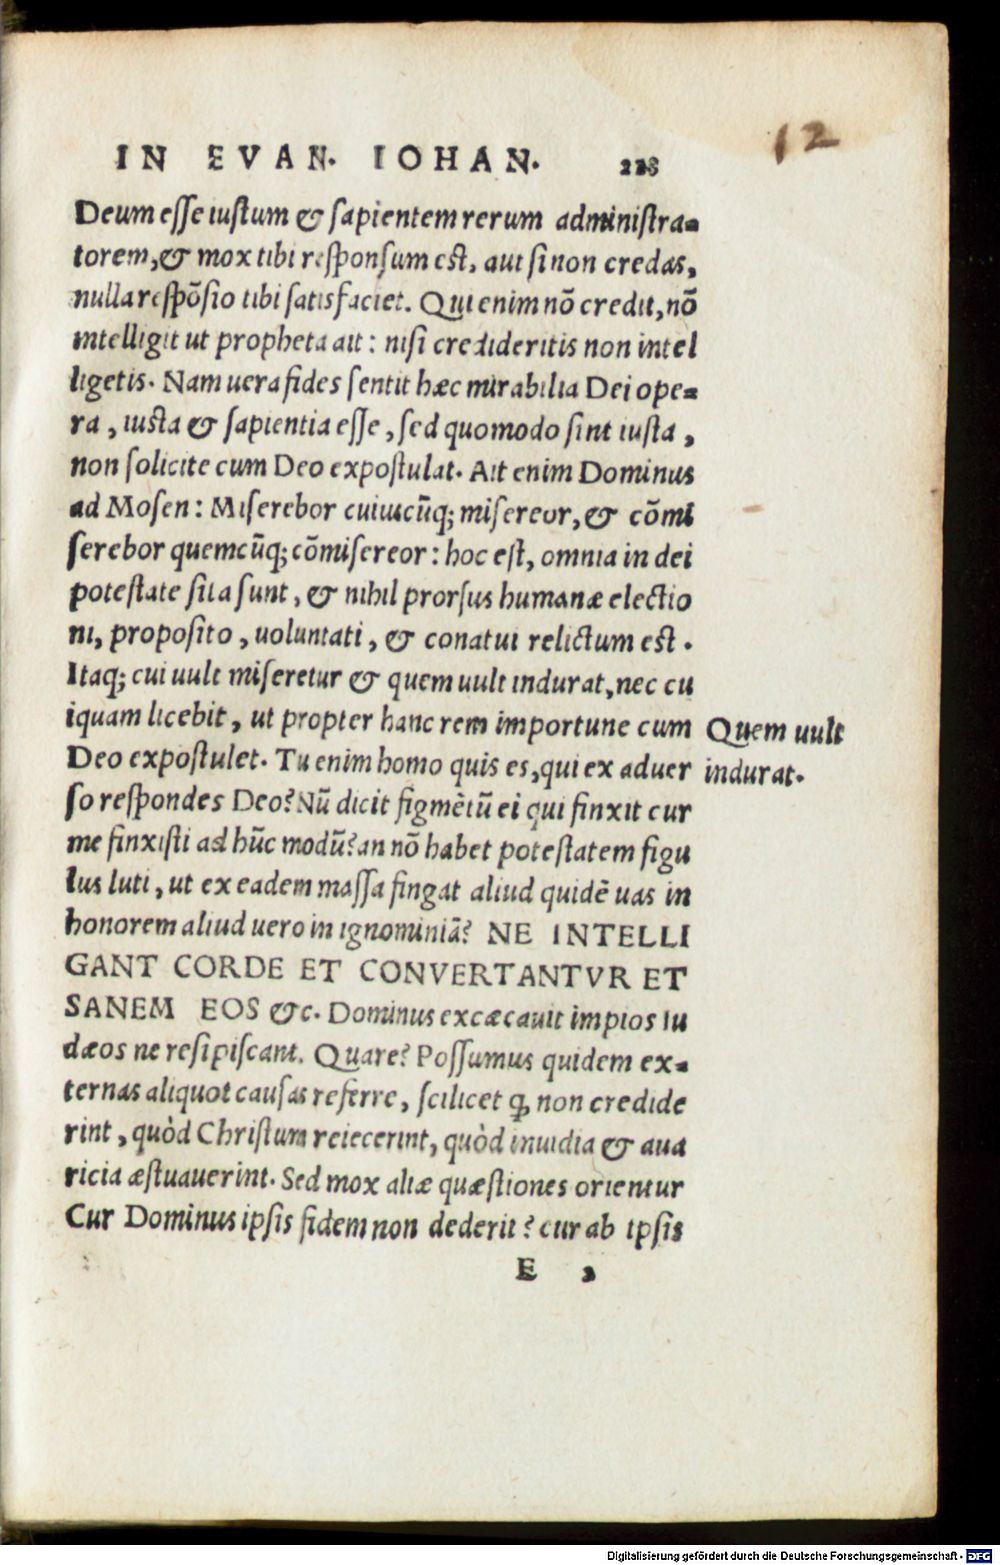 12
IN EVAN. IOHAN. 228
Deum esse iustum & sapientem rerum administra-
torem, & mox tibi responsum est, aut si non credas,
nulla respōsio tibi satisfaciet. Qui enim nō credit, nō
intelligit ut propheta ait: nisi credideritis non intel
ligetis. Nam uera fides sentit hæc mirabilia Dei ope-
ra, iusta & sapientia esse, sed quomodo sint iusta,
non solicite cum Deo expostulat. Ait enim Dominus
ad Mosen: Miserebor cuiuscūq; misereor, & cōmi
serebor quemcūq; cōmisereor: hoc est, omnia in dei
potestate sita sunt, & nihil prorsus humanæ electio
ni, proposito, uoluntati, & conatui relictum est.
Itaq; cui uult miseretur & quem uult indurat, nec cu
iquam licebit, ut propter hanc rem importune cum
Quem uult
Deo expostulet. Tu enim homo quis es, qui ex aduer
indurat.
so respondes Deo? Nū dicit figmētū ei qui finxit cur
me finxisti ad hūc modū? an nō habet potestatem figu
lus luti, ut ex eadem massa fingat aliud quidē uas in
honorem aliud uero in ignominiā? NE INTELLI
GANT CORDE ET CONVERTANTVR ET
SANEM EOS &c. Dominus excæcauit impios Iu
dæos ne resipiscant. Quare? Possumus quidem ex-
ternas aliquot causas referre, scilicet ꝙ non credide
rint, quòd Christum reiecerint, quòd inuidia & aua
ricia æstuauerint. Sed mox aliæ quæstiones orientur
Cur Dominus ipsis fidem non dederit? cur ab ipsis
E 2
Digitalisierung gefördert durch die Deutsche Forschungsgemeinschaft - DFG